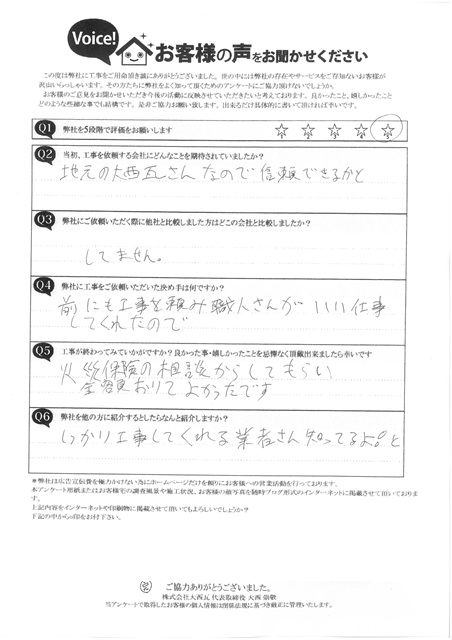 Voice!
お客様の声をお聞かせください
この度は弊社に工事をご用命頂き誠にありがとうございました。世の中には弊社の存在やサービスをご存知ないお客様が
沢山いらっしゃいます。その方たちに弊社をよく知って頂くためのアンケートにご協力頂けないでしょうか。
お客様のご意見をお聞かせいただき今後の活動に反映させていただきたいと考えております。良かったこと、嬉しかったこと
どのような些細な事でも結構です。是非ご協力お願い致します。出来るだけ具体的に書いて頂ければ幸いです。
Q1 弊社を5段階で評価をお願いします
1 2 3 4 5
Q2 当初、工事を依頼する会社にどんなことを期待されていましたか?
地元の大西瓦さんなので信頼できるかと
Q3 弊社にご依頼いただく際に他社と比較しました方はどこの会社と比較しましたか?
してません。
Q4 弊社に工事をご依頼いただいた決め手は何ですか?
前にも工事を頼み職人さんがいい仕事
してくれたので
Q5 工事が終わってみていかがですか?良かった事・嬉しかったことを忌憚なく頂戴出来ましたら幸いです
火災保険の相談からしてもらい
全額おりてよかったです
Q6 弊社を他の方に紹介するとしたらなんと紹介しますか?
しっかり工事してくれる業者さん知ってるよ。と
※弊社は広告宣伝費を極力かけない為にホームページだけを頼りにお客様への営業活動を行っております。
本アンケート用紙またはお客様宅の調査風景や施工状況、お客様の顔写真を随時ブログ形式のインターネットに掲載させて頂いておりま
す。
上記内容をインターネットや印刷物に掲載させて頂いてもよろしいでしょうか?
下記の中から○印をお付け下さい。
ご協力ありがとうございました。
株式会社大西瓦 代表取締役 大西 崇敬
当アンケートで取得したお客様の個人情報は関係法規に基づき厳正に管理いたします。